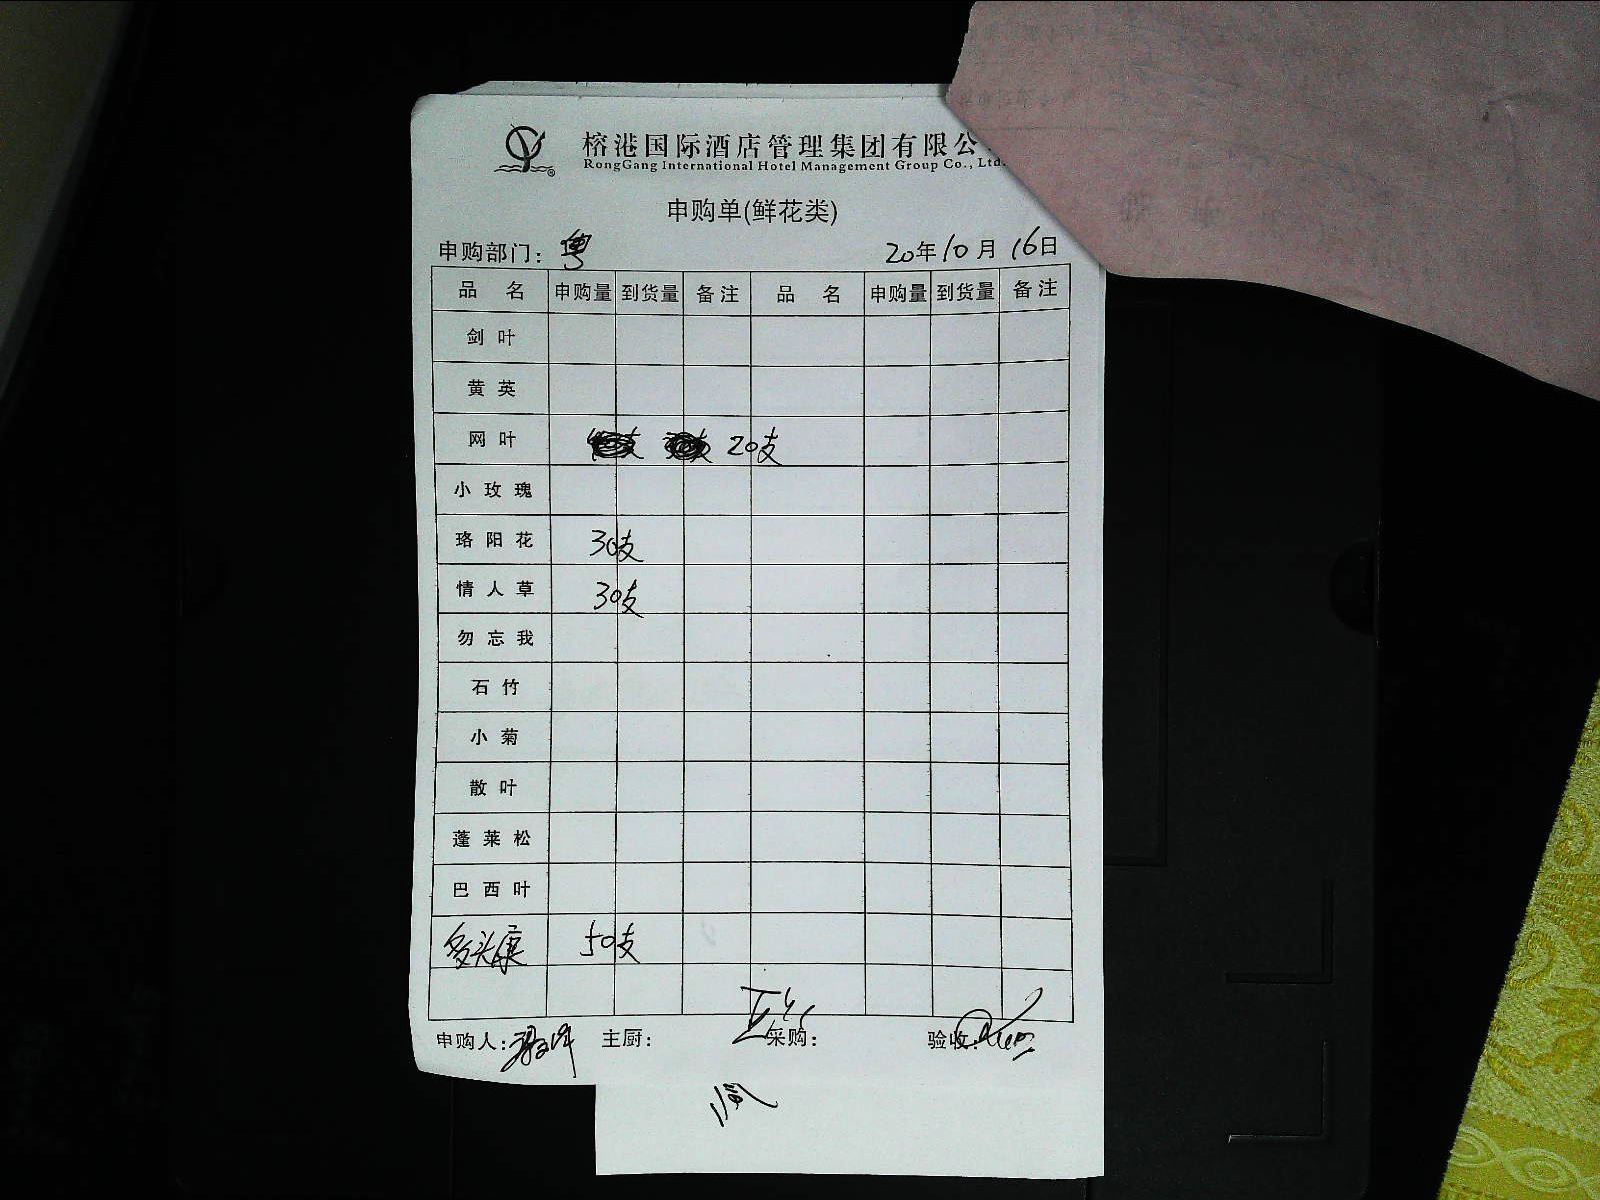 榕港国际酒店管理集团有限公
RongGang International Hotel Management Group Co., Ltd.
申购单(鲜花类)
申购部门: 粤 20年10月16日
品名 申购量 到货量 备注 品名 申购量 到货量 备注
剑叶
黄英
网叶 20支
小玫瑰
珞阳花 30支
情人草 30支
勿忘我
石竹
小菊
散叶
蓬莱松
巴西叶
多头康 50支
申购人: 主厨: 采购: 验收: